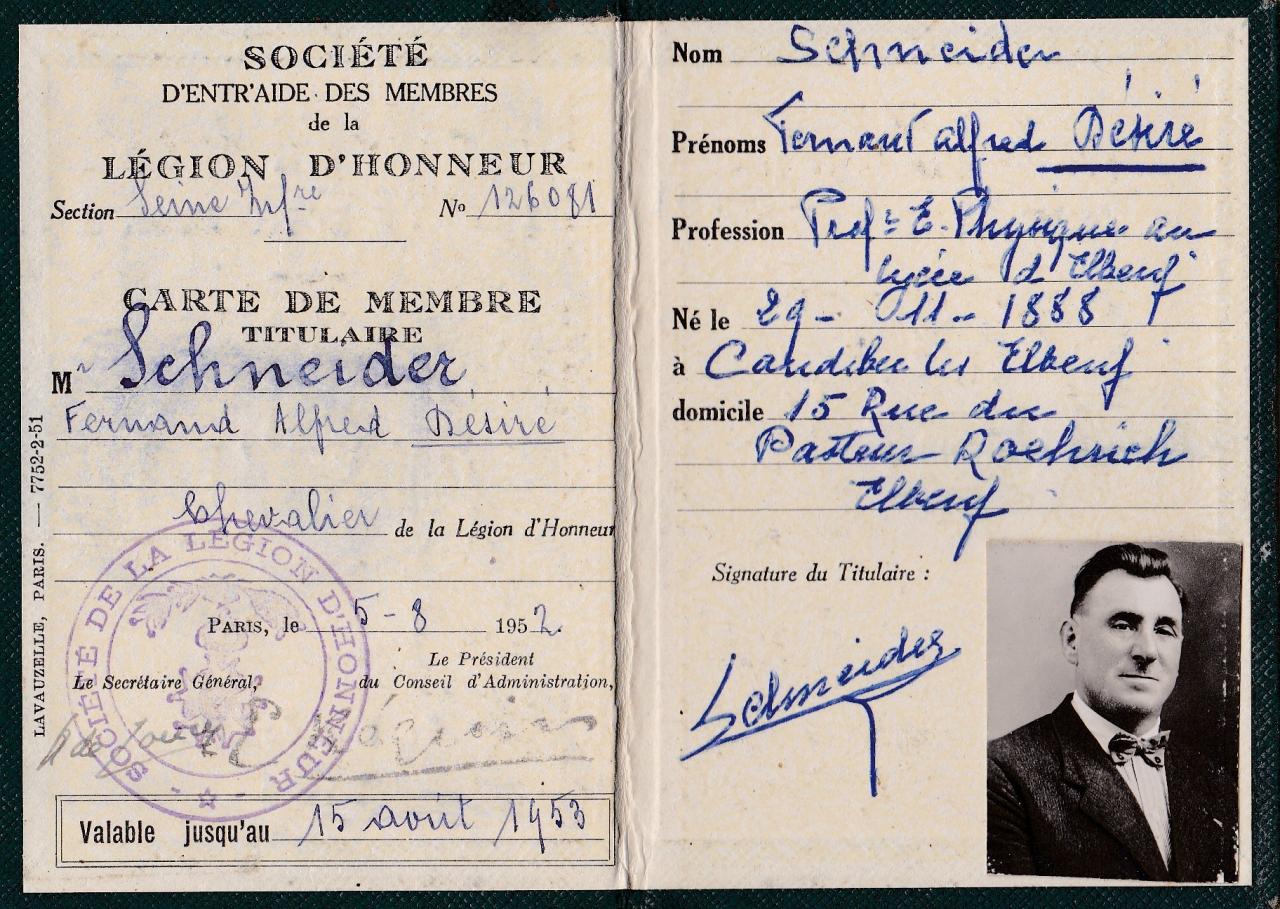 SOCIÉTÉ
D'ENTR'AIDE DES MEMBRES
de la
LÉGION D'HONNEUR
Section Seine Infre No 126081
CARTE DE MEMBRE
TITULAIRE
Mr Schneider
Fernand Alfred Désiré
Chevalier de la Légion d'Honneur
PARIS, le 5-8 1952.
Le Président
Le Secrétaire Général, du Conseil d'Administration,
Valable jusqu'au 15 août 1953
LAVAUZELLE, PARIS. — 7752-2-51
SOCIÉTÉ DE LA LÉGION D'HONNEUR
Nom Schneider
Prénoms Fernand alfred Désiré
Profession Profr E. Physique au
lycée d'Elbeuf
Né le 29-11-1888
à Caudebec les Elbeuf
domicile 15 Rue du
Pasteur Roehrich
Elbeuf
Signature du Titulaire :
Schneider